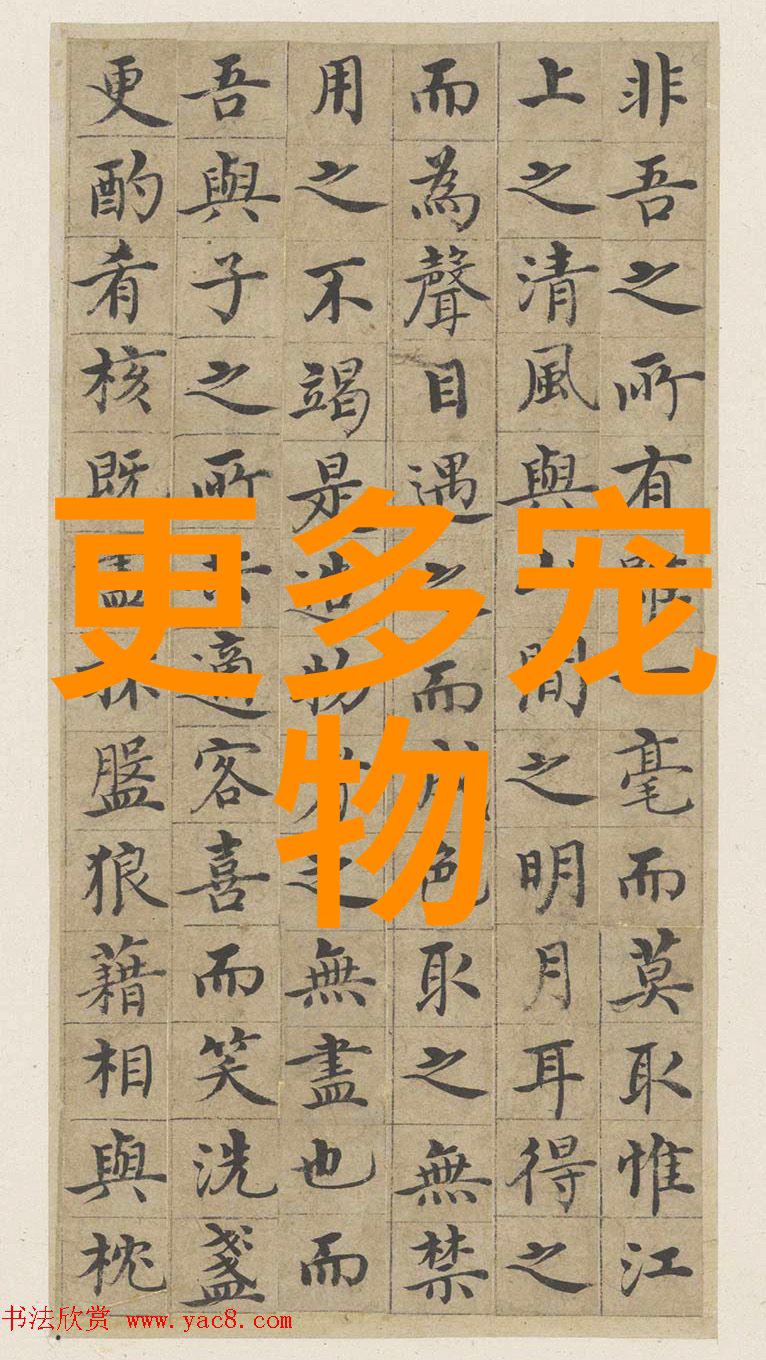 非吾之所有雖一毫而莫取惟江
上之清風與山間之明月耳得之
而為聲目遇之而成色取之無禁
用之不竭是造物者之無盡也而
吾與子之所共適客喜而笑洗盞
更酌肴核既盡杯盤狼藉相與枕
更多宠
物
书法欣赏 www.yac8.com